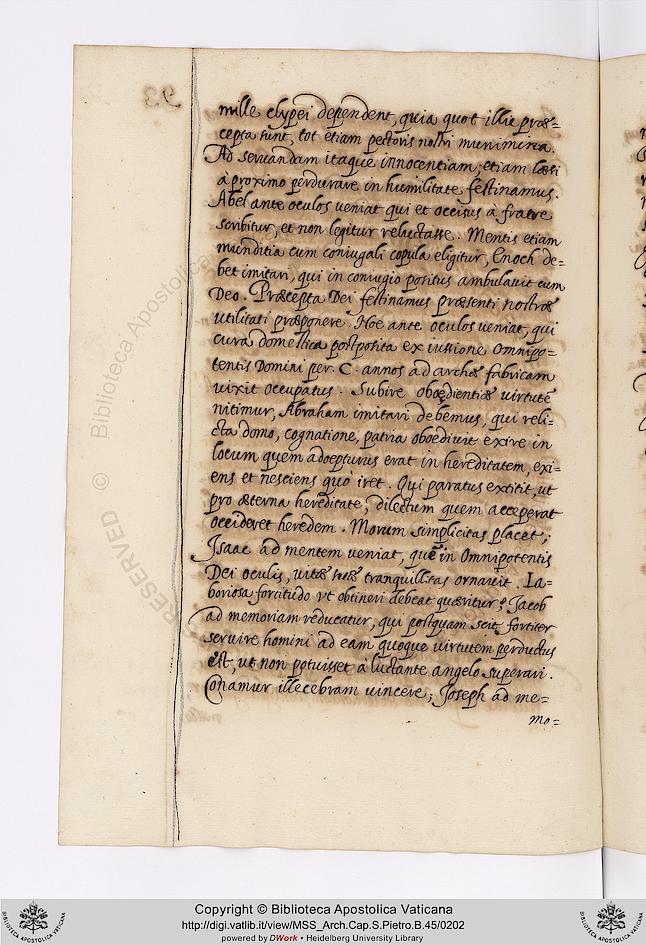 mille clypei dependent, quia quot illic præ=
cepta sunt, tot etiam pectoris nostri munimina.
Ad seruandam itaque innocentiam, etiam læsi
à proximo perdurare in humilitate festinamus.
Abel ante oculos veniat qui et occisus à fratre
scribitur, et non legitur reluctasse. Mentis etiam
munditia cum coniugali copula eligitur, Enoch de=
bet imitari, qui in coniugio positus ambulauit cum
Deo. Præcepta Dei festinamus præsenti nostræ
vtilitati præponere. Noe ante oculos veniat, qui
cura domestica postposita ex iussione Omnipo=
tentis Domini per .C. annos ad archæ fabricam
vixit occupatus. Subire obœdientiæ virtutē
nitimur, Abraham imitari debemus, qui reli=
cta domo, cognatione, patria obœdiuit exire in
locum quem adoepturus erat in hereditatem, exi=
ens et nesciens quò iret. Qui paratus extitit, ut
pro æterna hereditate, dilectum quem acceperat
occideret heredem. Morum simplicitas placet;
Isaac ad mentem veniat, quē in Omnipotentis
Dei oculis, vitæ suæ tranquillitas ornauit. La=
boriosa fortitudo vt obtineri debeat quæritur; Jacob
ad memoriam reducatur, qui postquam scit fortiter
seruire homini ad eam quoque virtutem perductus
est, vt non potuisset à luctante angelo superari.
Conamur illecebram vincere; Joseph ad me=
mo=
93
RESERVED © Biblioteca Apostolica
Copyright © Biblioteca Apostolica Vaticana
http://digi.vatlib.it/view/MSS_Arch.Cap.S.Pietro.B.45/0202
powered by DWork • Heidelberg University Library